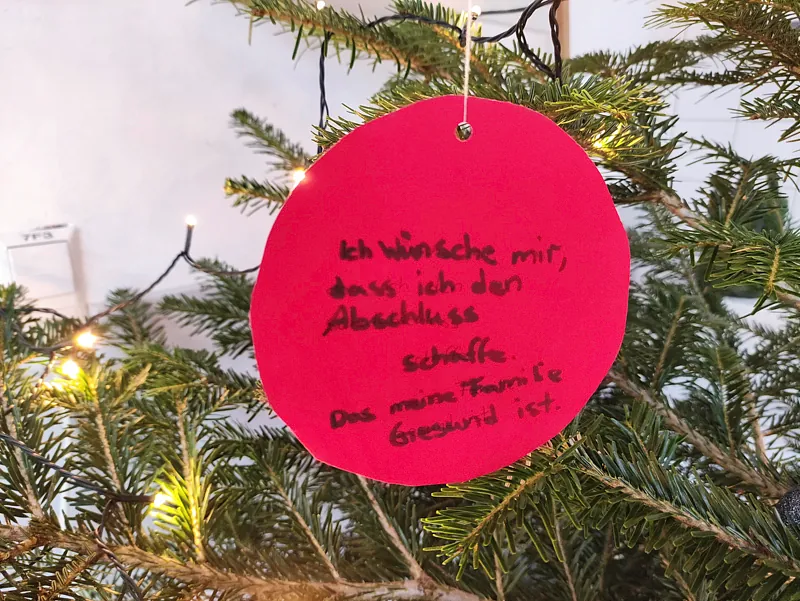 Ich Wünsche mir,
dass ich den
Abschluss
schaffe.
Das meine Familie
Gesund ist.